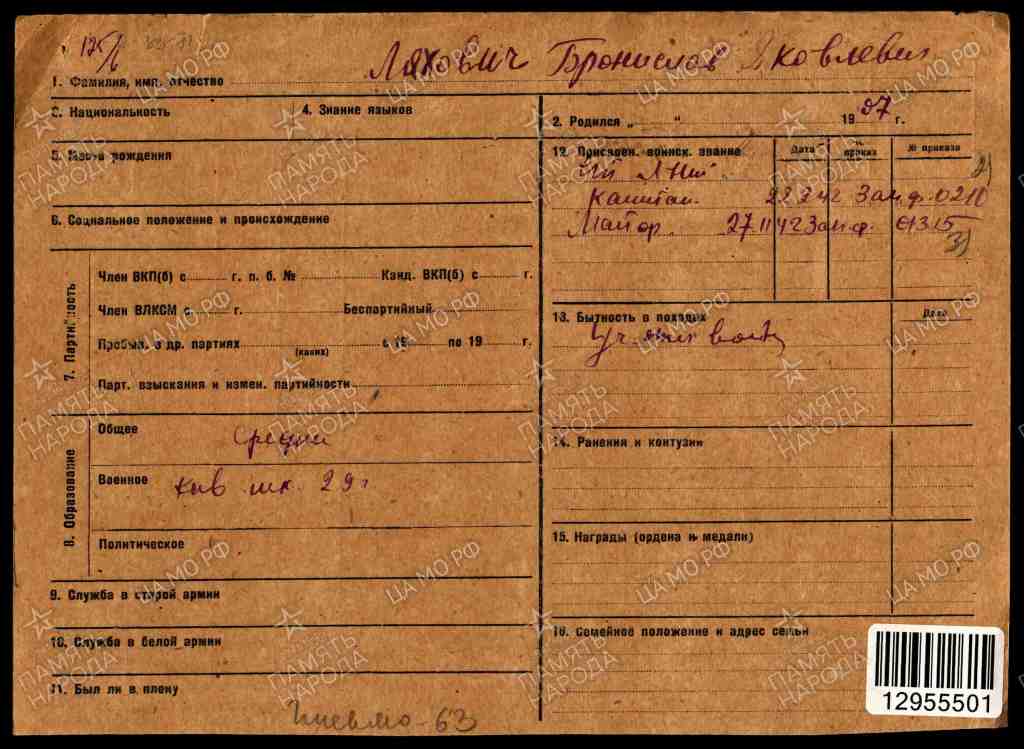 125/6
Ляхович Бронислав Яковлевич
1. Фамилия, имя, отчество
3. Национальность
4. Знание языков
5. Место рождения
6. Социальное положение и происхождение
7. Партийность
Член ВКП(б) с г. п. б. № Канд. ВКП(б) с г.
Член ВЛКСМ с г. Беспартийный
Пребыв. в др. партиях (каких) с 19 по 19 г.
Парт. взыскания и измен. партийности
8. Образование
Общее Средн
Военное кав шк. 29 г
Политическое
9. Служба в старой армии
10. Служба в белой армии
11. Был ли в плену
2. Родился „ “ 1907 г.
12. Присвоен. воинск. звание Дата приказ № приказа
2)
Капитан 22 2 42 Зап.ф. 0210
Майор 27 11 42 Зап.ф. 01315
3)
13. Бытность в походах Дата
Уч.
14. Ранения и контузии
15. Награды (ордена и медали)
16. Семейное положение и адрес семьи
63
12955501
ПАМЯТЬ НАРОДА
ЦА МО РФ